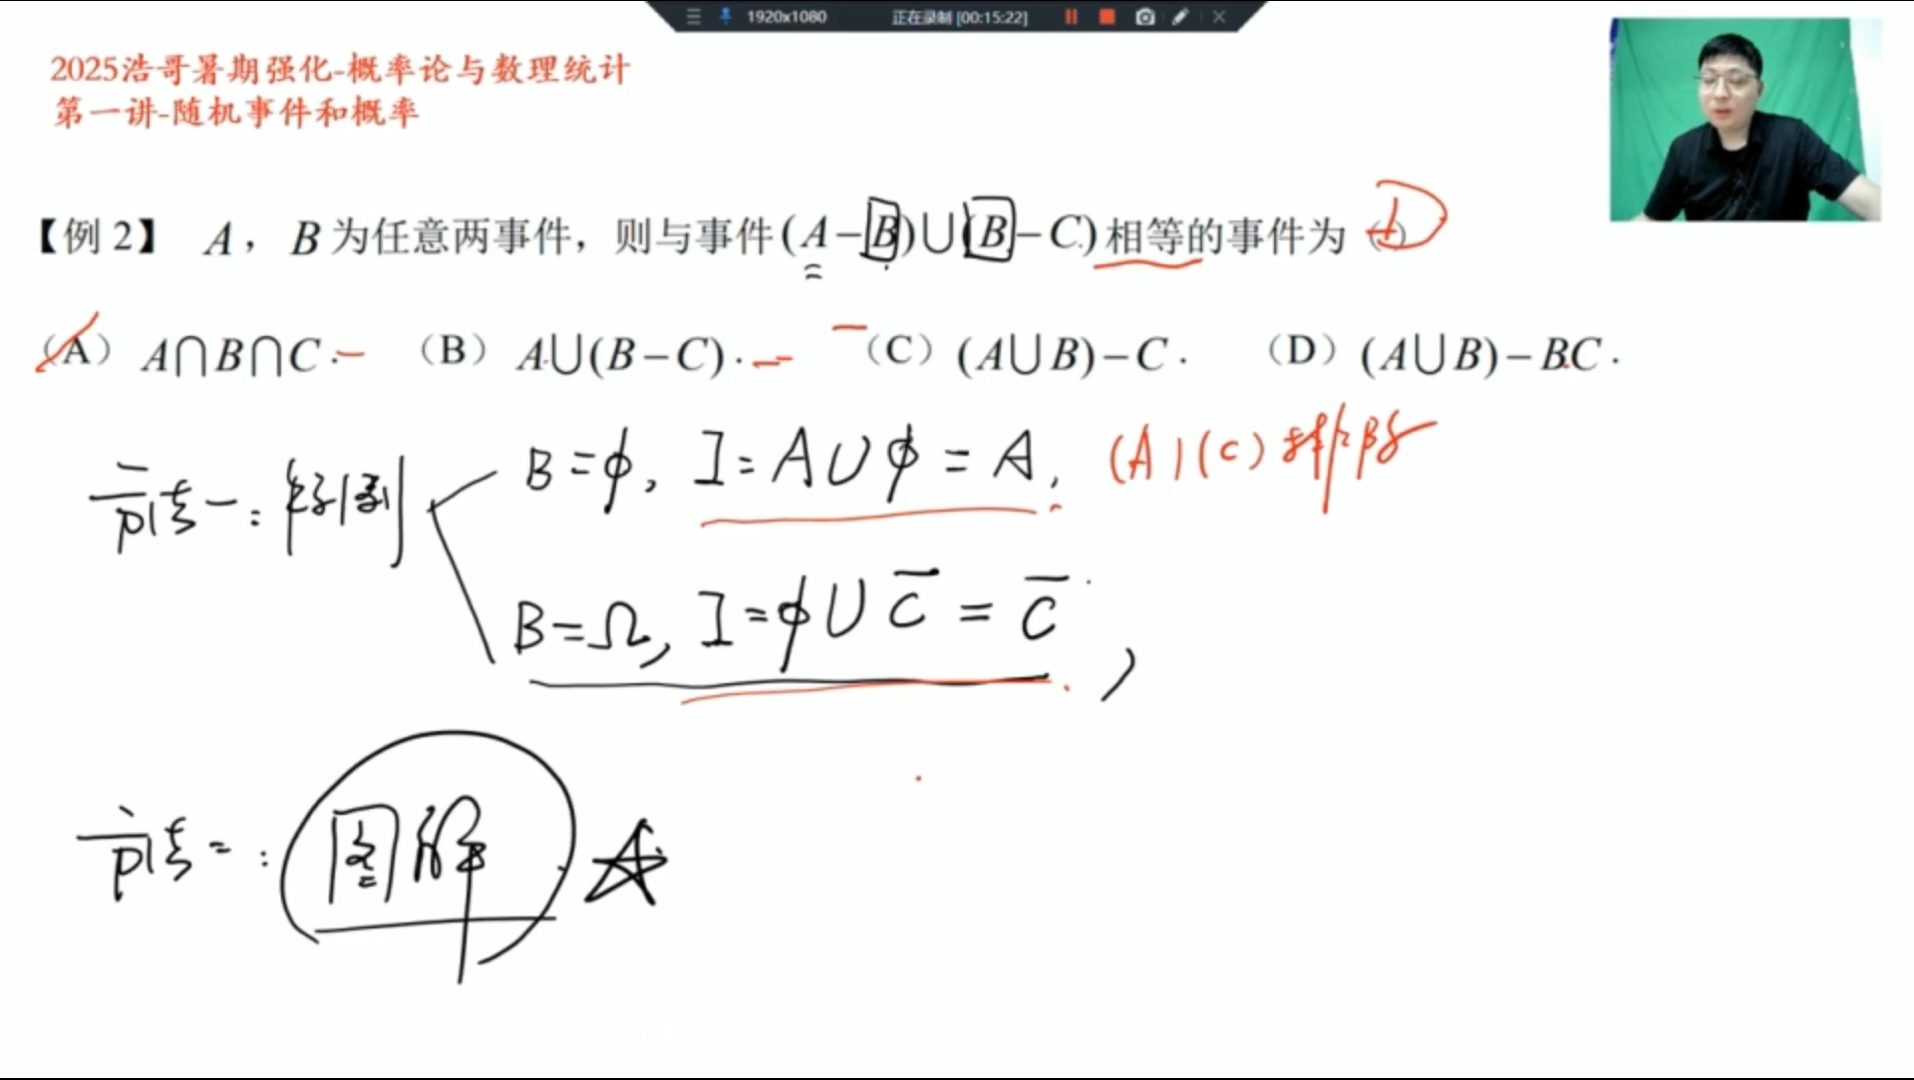 1920x1080 正在录制 [00:15:22]
2025浩哥暑期强化-概率论与数理统计
第一讲-随机事件和概率
【例 2】 A，B 为任意两事件，则与事件(A−B)∪(B−C)相等的事件为（ ） D
（A）A∩B∩C． （B）A∪(B−C)． （C）(A∪B)−C． （D）(A∪B)−BC．
方法一：特例
B=ϕ, I=A∪ϕ=A, (A)(C)排除
B=Ω, I=ϕ∪C̅=C̅,
方法二：图解